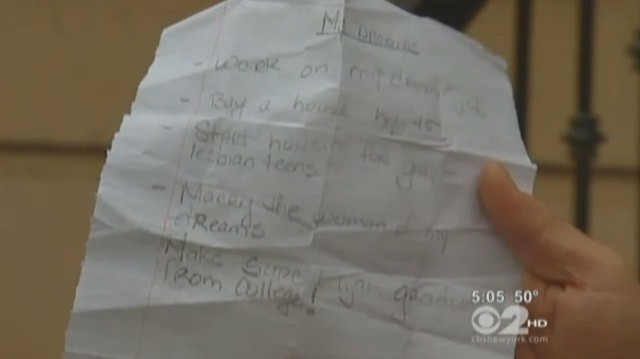 My Dreams
- Work on my
- Buy a house by 45
- Start housing for gay
lesbian teens
- Marry the woman of my
dreams
Make sure graduates
From College!
5:05 50°
2 HD
cbsnewyork.com